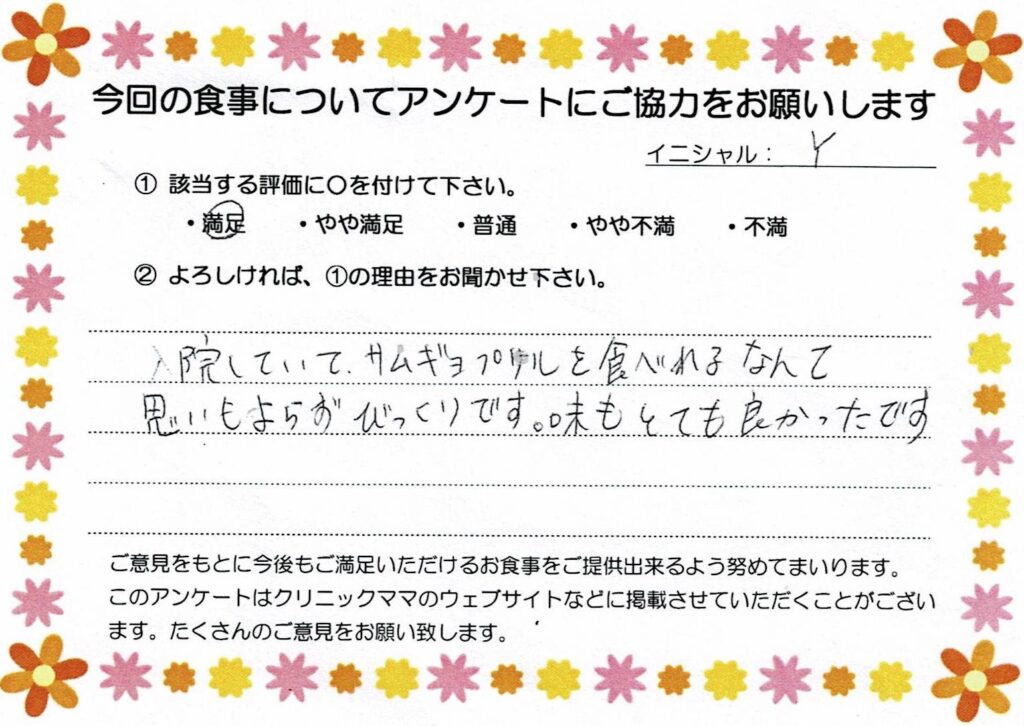 今回の食事についてアンケートにご協力をお願いします
イニシャル： Y
① 該当する評価に〇を付けて下さい。
・満足 ・やや満足 ・普通 ・やや不満 ・不満
② よろしければ、①の理由をお聞かせ下さい。
入院していて、サムギョプサルを食べれるなんて
思いもよらずびっくりです。味もとても良かったです
ご意見をもとに今後もご満足いただけるお食事をご提供出来るよう努めてまいります。
このアンケートはクリニックママのウェブサイトなどに掲載させていただくことがござい
ます。たくさんのご意見をお願い致します。